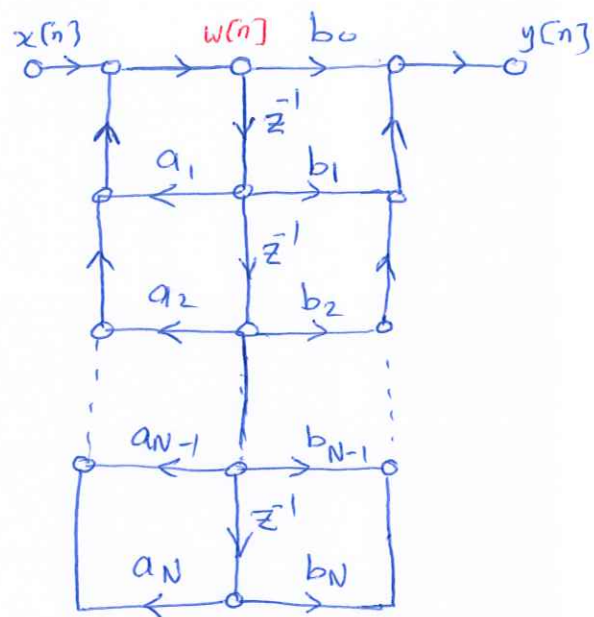 x[n] w[n] b0 y[n]
z^-1
a1 b1
z^-1
a2 b2
aN-1 bN-1
z^-1
aN bN